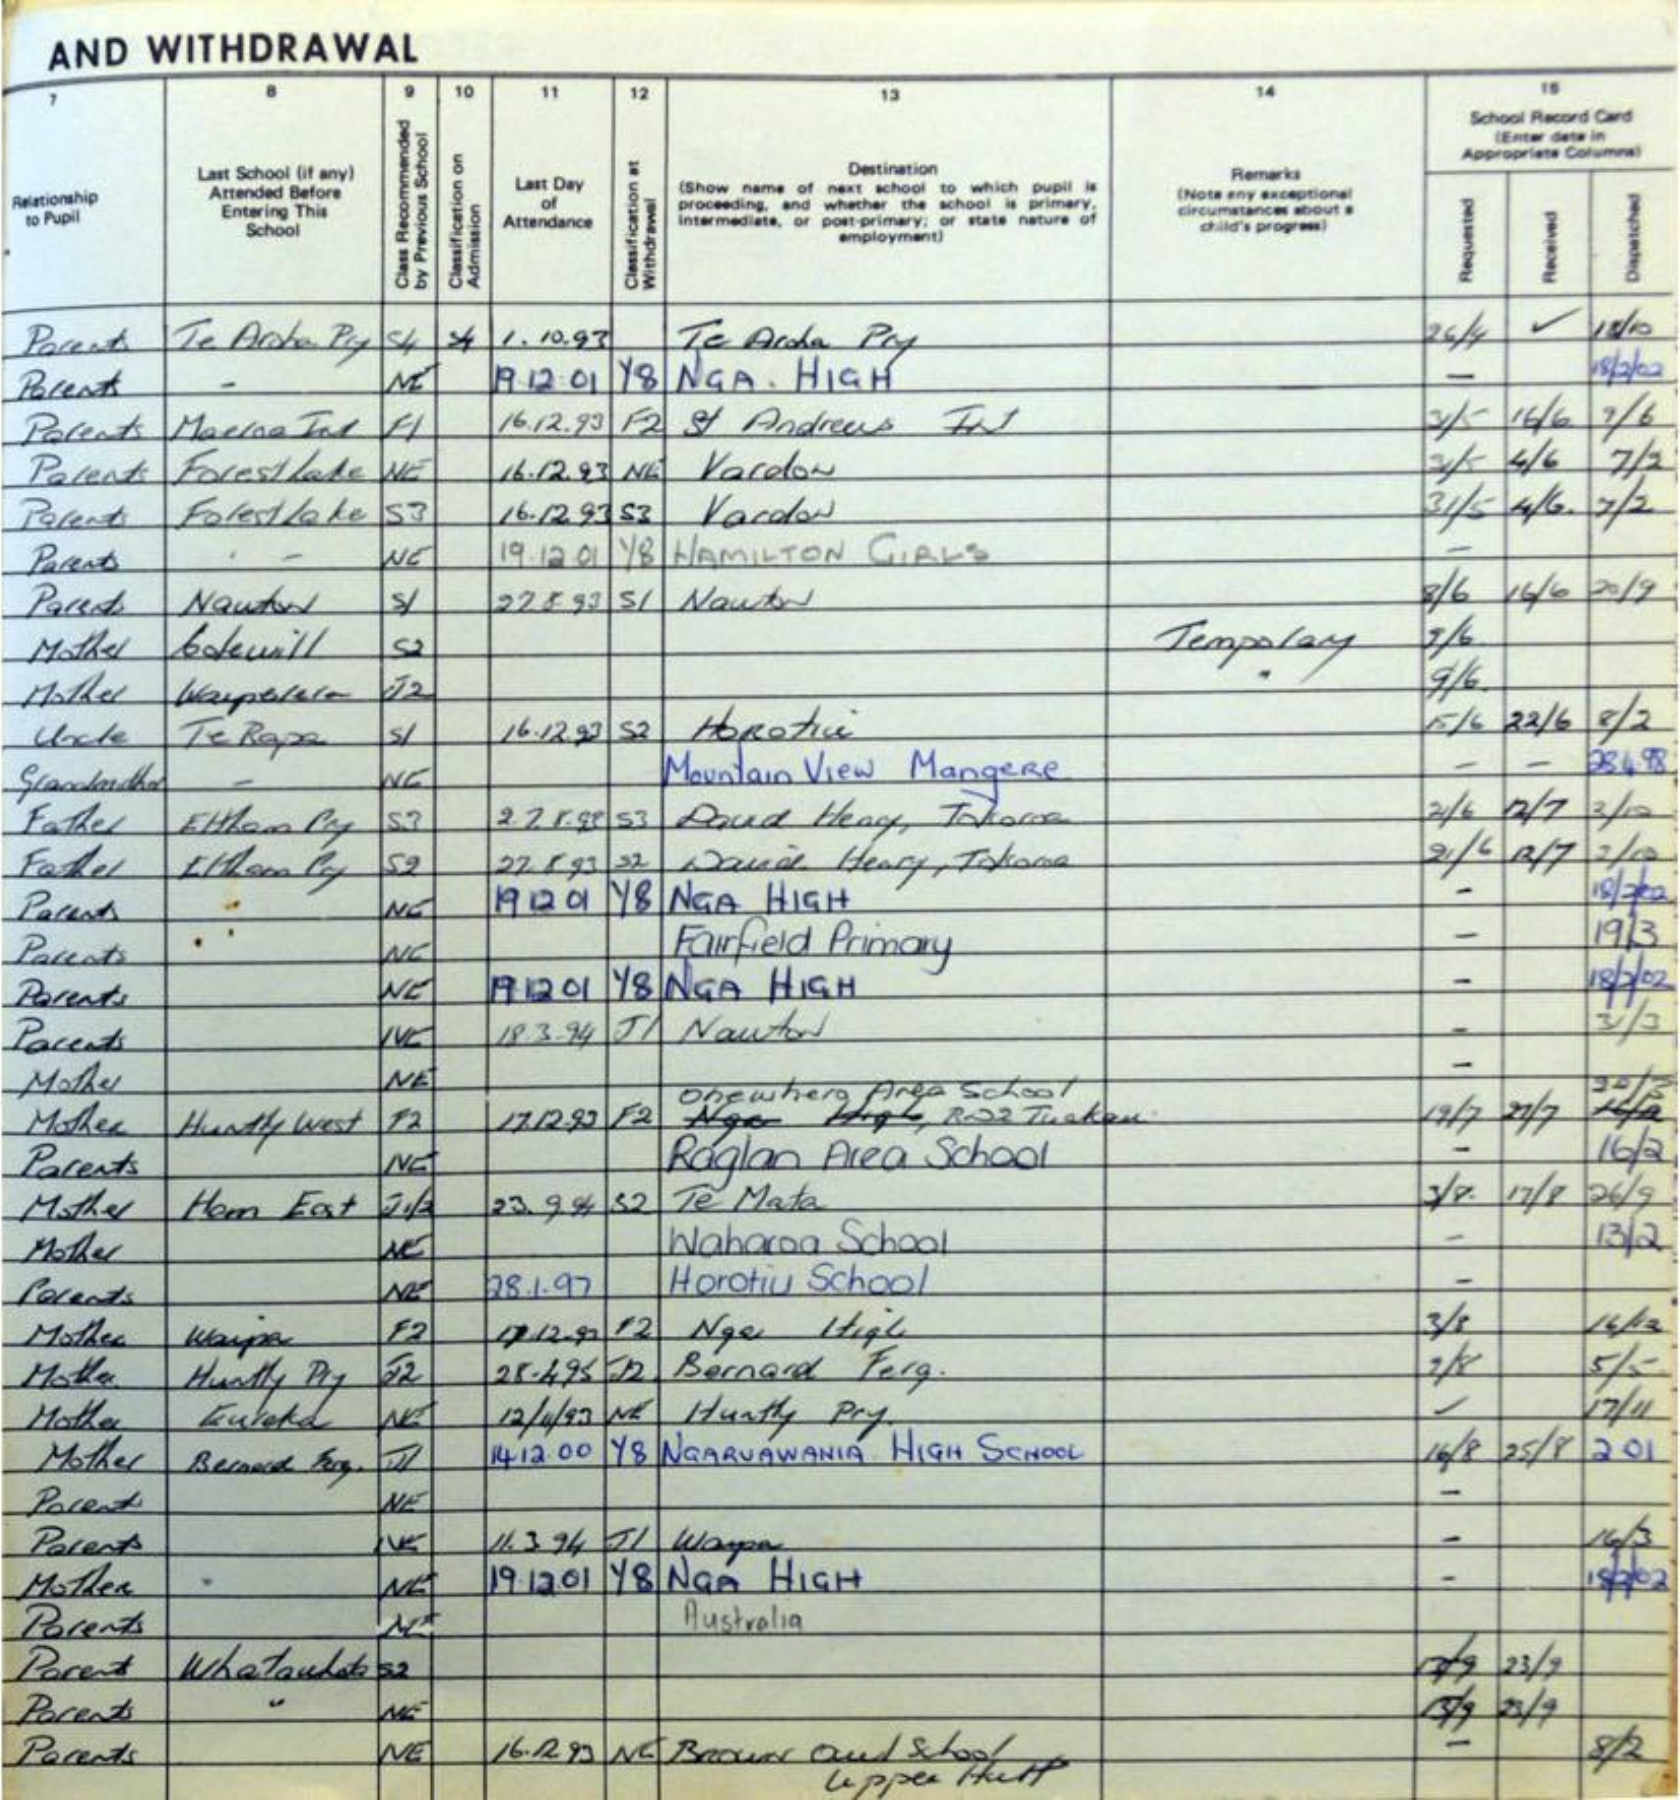 AND WITHDRAWAL
7 8 9 10 11 12 13 14 15
Relationship to Pupil
Last School (if any) Attended Before Entering This School
Class Recommended by Previous School
Classification on Admission
Last Day of Attendance
Classification at Withdrawal
Destination
(Show name of next school to which pupil is proceeding, and whether the school is primary, intermediate, or post-primary; or state nature of employment)
Remarks
(Note any exceptional circumstances about a child's progress)
School Record Card
(Enter date in Appropriate Columns)
Requested Received Dispatched
Parents Te Aroha Pry S4 S4 1.10.93 Te Aroha Pry 26/4 ✓ 18/10
Parents - NE 19.12.01 Y8 NGA. HIGH - 18/2/02
Parents Maeroa Int F1 16.12.93 F2 St Andrews Int 31/5 16/6 9/6
Parents Forest Lake NE 16.12.93 NE Vardon 31/5 4/6 7/2
Parents Forest Lake S3 16.12.93 S3 Vardon 31/5 4/6. 7/2
Parents - NE 19.12.01 Y8 HAMILTON GIRLS -
Parents Nawton S1 27.8.93 S1 Nawton 8/6 16/6 20/9
Mother S2 Temporary 9/6
Mother J2 " 9/6.
Uncle Te Rapa S1 16.12.93 S2 Horotiu 15/6 22/6 8/2
Grandmother - NE Mountain View Mangere - - 28.4.98
Father Eltham Pry S3 27.8.93 S3 David Henry, Tokoroa 21/6 12/7 3/10
Father Eltham Pry S2 27.8.93 S2 David Henry, Tokoroa 21/6 12/7 3/10
Parents NE 19.12.01 Y8 NGA HIGH - 18/2/02
Parents NE Fairfield Primary - 19/3
Parents NE 19.12.01 Y8 NGA HIGH - 18/2/02
Parents NE 18.3.94 J1 Nawton - 31/3
Mother NE -
Onewhero Area School
Mother Huntly West F2 17.12.93 F2 Nga High, RD2 Tuakau 19/7 27/7
Parents NE Raglan Area School - 16/2
Mother Ham East J1/2 23.9.94 S2 Te Mata 3/8. 17/8 26/9
Mother NE Waharoa School - 13/2
Parents NE 28.1.97 Horotiu School -
Mother Waipa F2 17.12.93 F2 Nga High 3/8 16/12
Mother Huntly Pry J2 28.4.95 J2 Bernard Ferg. 2/8 5/5
Mother Eureka NE 12/11/93 NE Huntly Pry. ✓ 17/11
Mother Bernard Ferg. J1 14.12.00 Y8 NGARUAWANIA HIGH SCHOOL 16/8 25/8 2 01
Parents NE -
Parents NE 11.3.94 J1 Waipa - 16/3
Mother NE 19.12.01 Y8 NGA HIGH - 18/2/02
Parents NE Australia
Parent Whatawhata S2 13/9 23/9
Parents " NE 13/9 23/9
Parents NE 16.12.93 NE Brown Owl School - 8/2
Upper Hutt